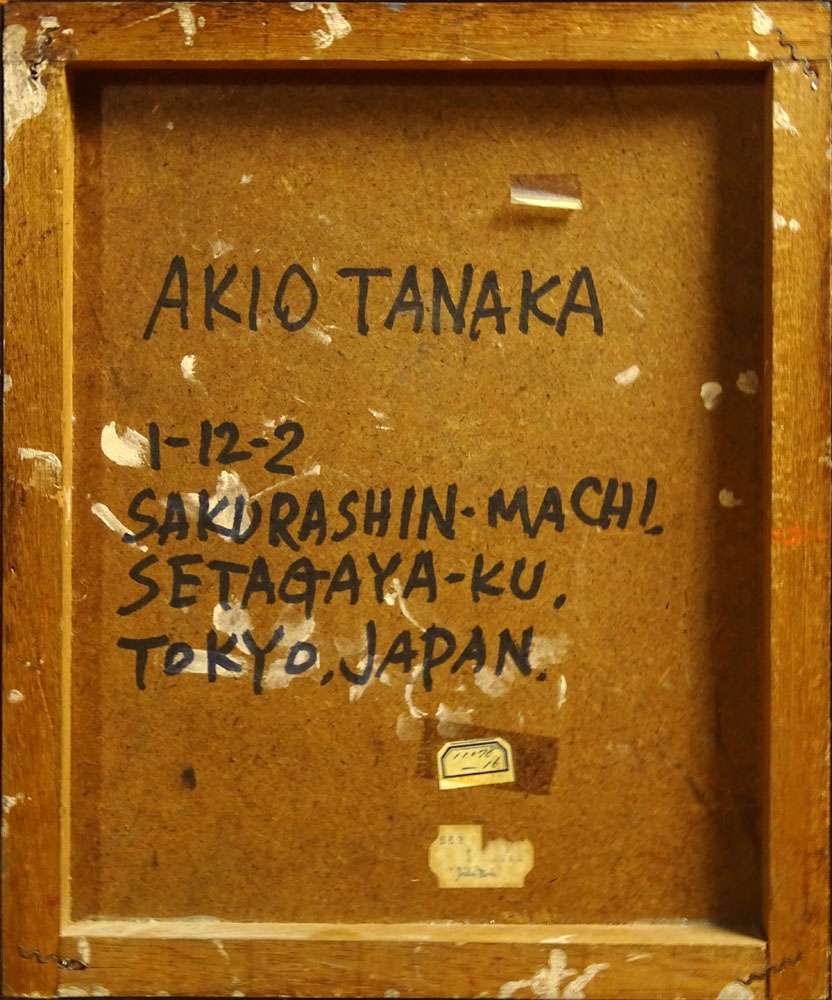 AKIO TANAKA
1-12-2
SAKURASHIN-MACHI.
SETAGAYA-KU.
TOKYO, JAPAN.